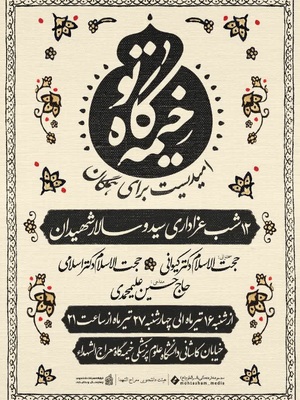 خیمه گاه تو
امیدیست برای همگان
۱۲ شب عزاداری سید و سالار شهیدان
حجت الاسلام دکتر کیوانی حجت الاسلام دکتر اسلامی
حاج حسین علیمحمدی
از شنبه ۱۶ تیرماه الی چهارشنبه ۲۷ تیرماه از ساعت ۲۱
خیابان کاشانی دانشگاه علوم پزشکی خیمه گاه معراج الشهداء
هیئت دانشجویی معراج الشهدا
mohtasham_media